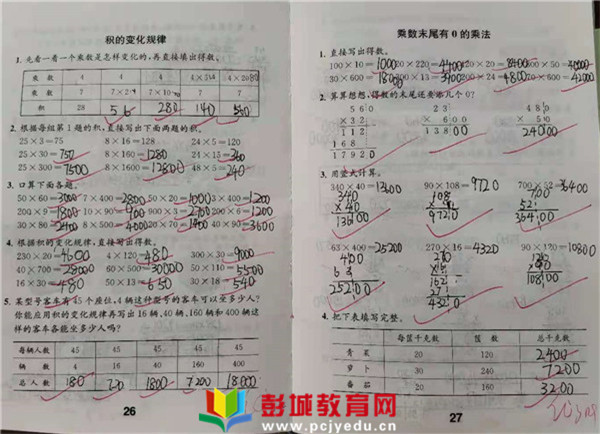 积的变化规律
1. 先看一看一个乘数是怎样变化的,再直接填出得数。
乘数 4 4 4 4×5 4×20
乘数 7 7×2 7×10 7 7
积 28 56 280 140 560
2. 根据每组第1题的积,直接写出下面两题的积。
25×3=75 8×16=128 24×5=120
25×30=750 8×160=1280 24×15=360
25×300=7500 8×1600=12800 48×5=240
3. 口算下面各题。
50×60=3000 7×400=2800 50×20=1000 3×400=1200
200×9=1800 10×90=900 900×3=2700 200×6=1200
30×80=2400 8×500=4000 20×70=1400 90×40=3600
4. 根据积的变化规律,直接写出得数。
230×20=4600 4×120=480 300×30=9000
40×700=28000 60×500=30000 50×110=5500
16×30=480 50×13=650 30×18=540
5. 某型号客车有45个座位,4辆这种型号的客车可以坐多少人?
你能应用积的变化规律再写出16辆、40辆、160辆和400辆这
样的客车各能坐多少人吗?
每辆人数 45 45 45 45 45
辆数 4 16 40 160 400
总人数 180 720 1800 7200 18000
26
乘数末尾有0的乘法
1. 直接写出得数。
100×10=1000 20×220=4400 20×50=
30×600=18000 300×13=3900 200×24=4800 600×
2. 算算想想,得数的末尾还要几个0?
560 230 480
×32 ×60 ×50
112 13800 24000
168
17920
3. 用竖式计算。
340×40=13600 90×108=9720 700×52=36400
63×400=25200 270×16=4320 90×120=10800
4. 把下表填写完整。
每筐千克数 筐数 总千克数
青菜 20 120 2400
萝卜 30 240 7200
番茄 20 160 3200
27
彭城教育网
www.pcjyedu.cn